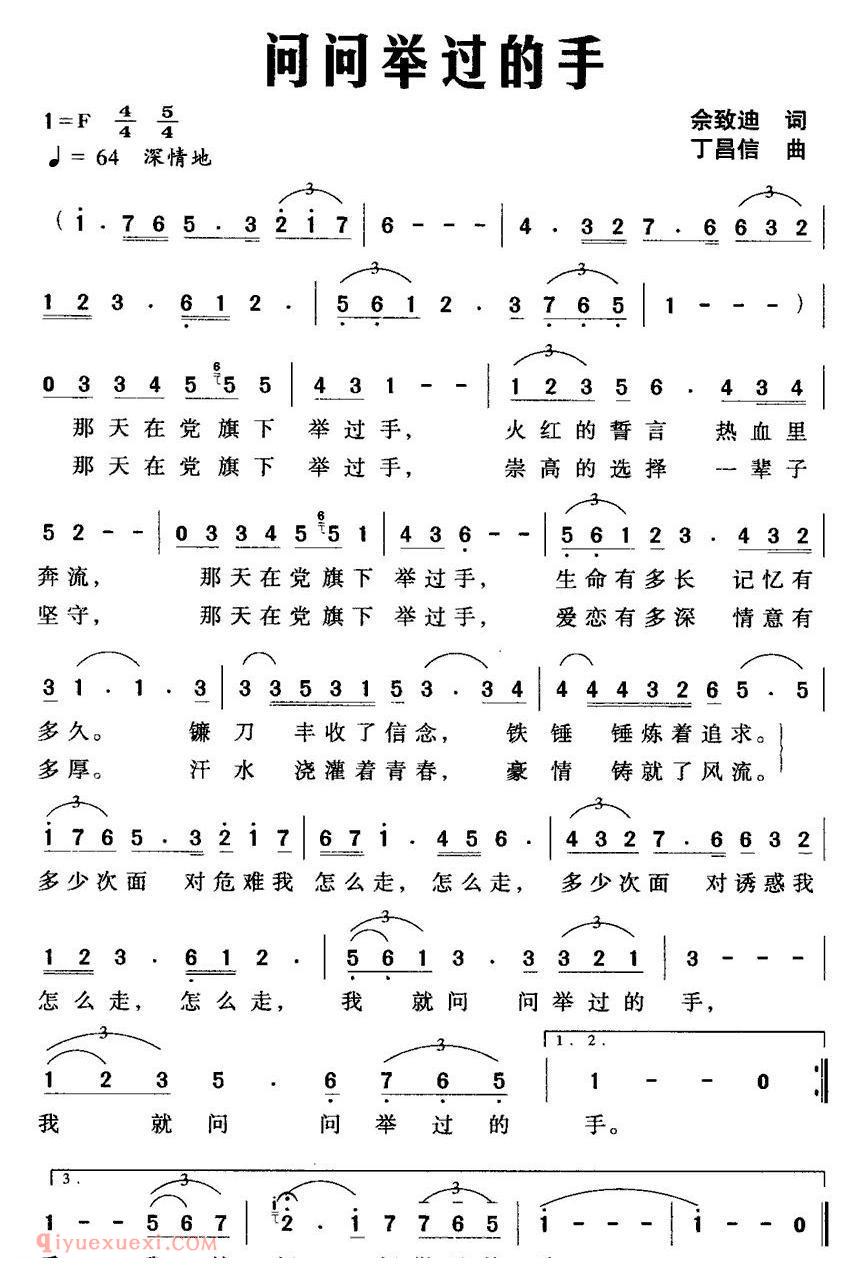 问问举过的手
1=F 4/4 5/4
佘致迪 词
♩= 64 深情地
丁昌信 曲
(i· 765·3 2i7 | 6 - - - | 4·327·6 632 |
123·612· | 5612·3 765 | 1 - - - )
033455 55 | 431 - - | 12356·434
那天在党旗下 举过手, 火红的誓言 热血里
那天在党旗下 举过手, 崇高的选择 一辈子
52 - - | 03345 51 | 436 - - | 56123·432
奔流, 那天在党旗下 举过手, 生命有多长 记忆有
坚守, 那天在党旗下 举过手, 爱恋有多深 情意有
31·1·3 | 3353153·34 | 4443265·5
多久。 镰刀 丰收了信念, 铁锤 锤炼着追求。
多厚。 汗水 浇灌着青春, 豪情 铸就了风流。
i765·32i7 | 67i·456· | 4327·6632
多少次面 对危难我 怎么走, 怎么走, 多少次面 对诱惑我
123·612· | 5613·3321 | 3 - - -
怎么走, 怎么走, 我 就问 问举过的 手,
1 2 3 5 · 6 7 6 5 | 1. 2. 1 - - 0 :||
我 就问 问举过的 手。
3.
1 - - 567 | 2·i7765 | i - - - | i - - 0
qiyuexuexi.com